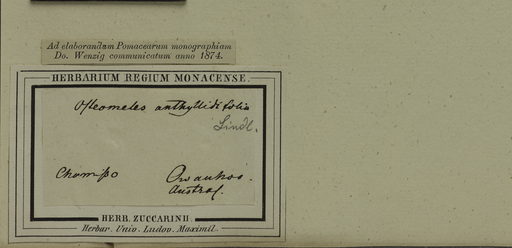 Ad elaborandum Pomacearum monographiam
Do. Wenzig communicatum anno 1874.
HERBARIUM REGIUM MONACENSE.
Osteomeles anthyllidifolia
Lindl.
Chamisso
Owauhoo.
Austral.
HERB. ZUCCARINII.
Herbar. Univ. Ludov. Maximil.